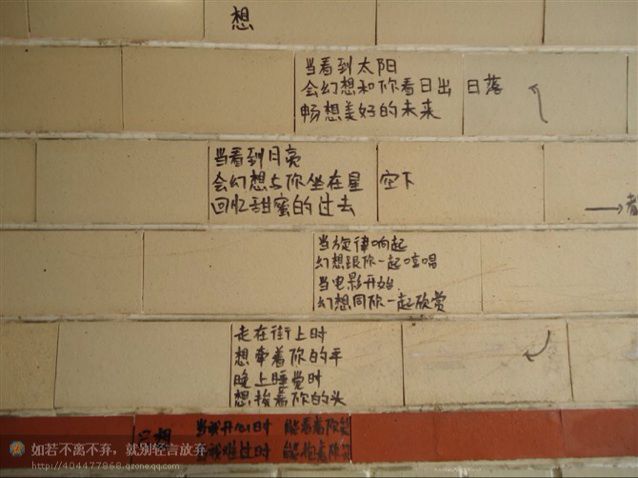 想
当看到太阳
会幻想和你看日出 日落
畅想美好的未来
当看到月亮
会幻想与你坐在星 空下
回忆甜蜜的过去
当旋律响起
幻想跟你一起哼唱
当电影开始
幻想同你一起欣赏
走在街上时
想牵着你的手
晚上睡觉时
想挨着你的头
只想 当我开心时 能看着你笑
当我难过时 能抱着你哭
如若不离不弃，就别轻言放弃
http://404477868.qzone.qq.com